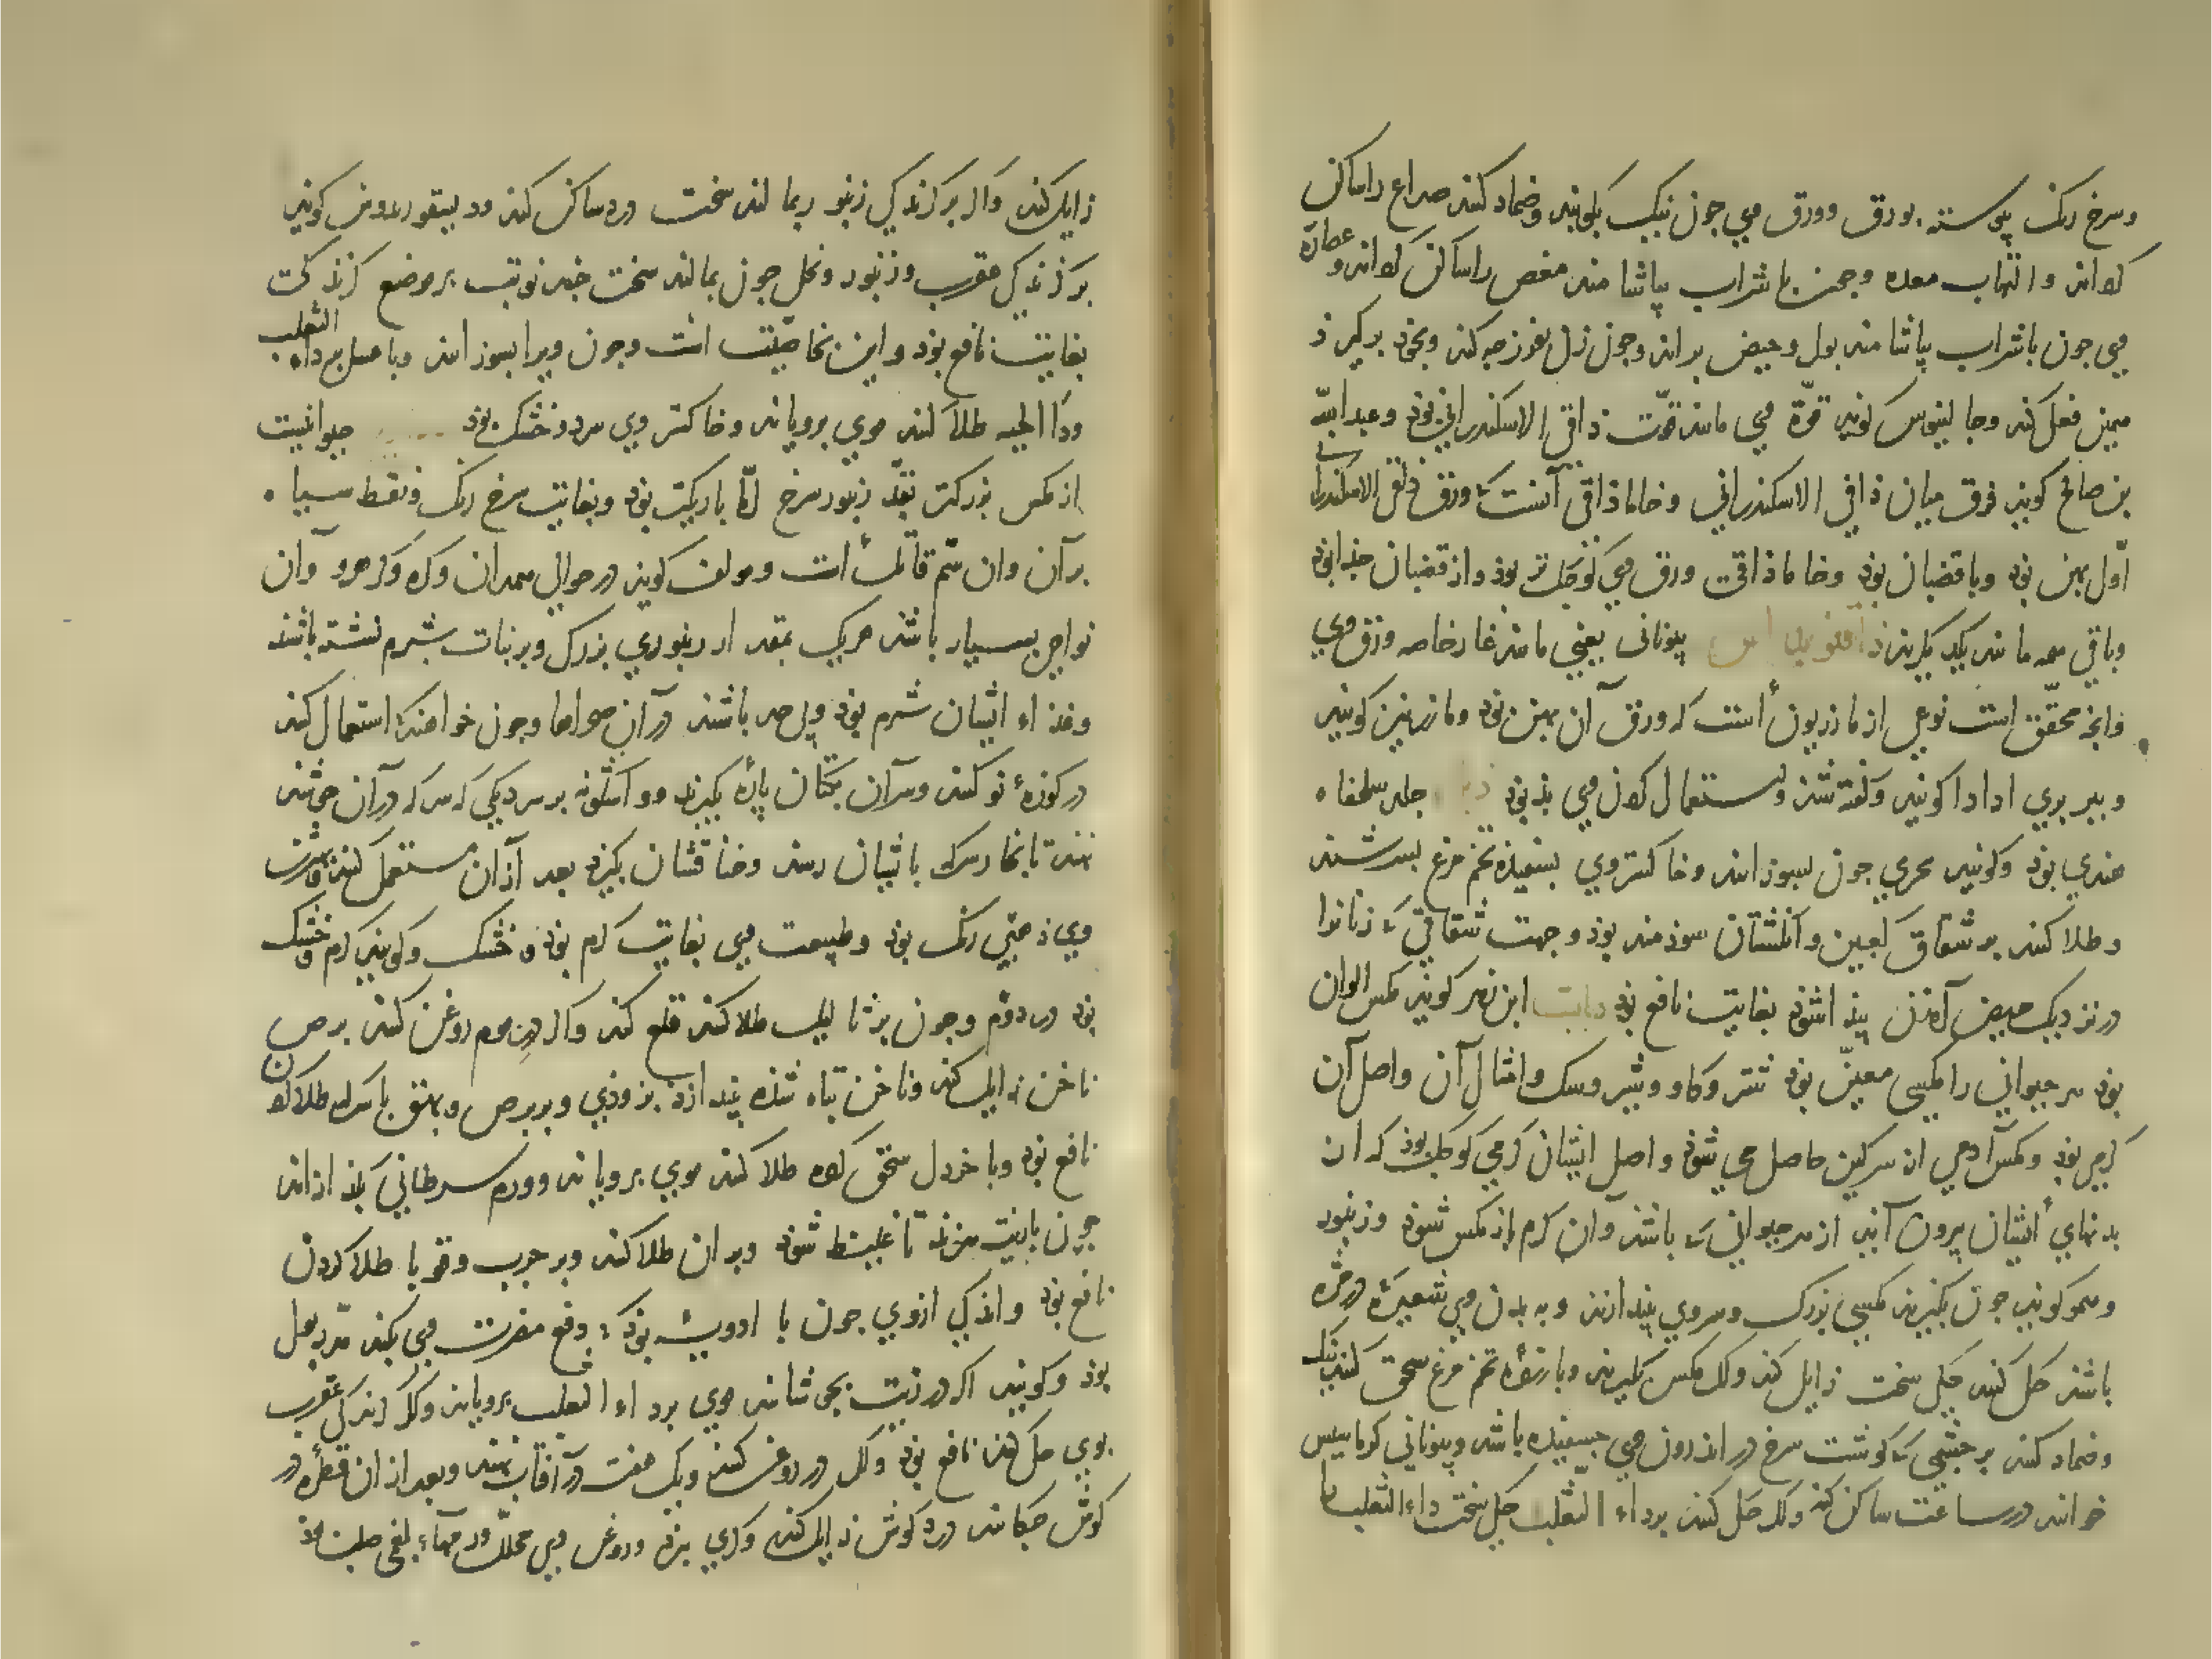 وسرخ رنک پیوسته بورق وورق وی جون نیک بکوبند وضماد کنند صداع راساکن
کرداند والتهاب معده وجون باشراب بیاشامند مغص راساکن کرداند وعصاره
وی جون باشراب بیاشامند بول وحیض براند وجون زن بفوزجه کند وبخوذ برکیرذ
همین فعل کند وجالینوس کوید قوّة وی مانند قوّت ذافنی الاسکندرانی بوذ وعبد الله
بن صالح کوید فرق میان ذافنی الاسکندرانی وخاماذافنی آنست که ورق ذافنی الاسکندرانی
اوّل پهن بوذ وباقضبان بوذ وخاماذافنی ورق وی کوجک تر بوذ واز قضبان جدا بوذ
وباقی همه مانند یکدیکرند ذافنویداس بیونانی یعنی مانند غار خاصه ورق وی
وانجه محقّق است نوعی از مازریون است که ورق آن پهن بوذ ومازرین کویند
وببربری ادادا کویند وکفته شذ واستعمال کردن وی بذ بوذ ذبل جلد سلحفاه
هندی بوذ وکویند بحری جون بسوزانند وخاکستر وی بسفیده تخم مرغ بسرشند
وطلا کنند بر شقاق کعبین وانکشتان سوذمند بوذ وجهت شقاقی که زنانرا
در نزدیک حیض آمدن پیذا شوذ بغایت نافع بوذ ذباب ابن زهر کوید مکس الوان
بوذ هر حیوانی را مکسی معین بوذ شتر وکاو وشیر وسک وامثال آن واصل آن
کرمی بوذ ومکس آدمی از سرکین حاصل می شوذ واصل ایشان کرمی کوجک بوذ که از
بدنهای ایشان بیرون آید از هر حیوانی که باشد وآن کرم باز مکس شوذ وزنبور
وهمو کوید جون بکیرند مکسی بزرک وسر وی بیندازند وببدن وی شعیره در مژه
باشد حل کنند حکی سخت زایل کند واکر مکس بکیرند وبا زرده تخم مرغ سحق کنند نیک
وضماد کنند بر جشمی که کوشت سرخ در اندرون وی جسفیده باشد وبیونانی کوماسیس
خوانند در ساعت ساکن کند واکر حل کنند بر داء الثعلب حکی سخت داء الثعلب را
زایل کند واکر بر کزندکی زنبور بمالند سخت درد ساکن کند ودیسقوریدوس کوید
بر کزندکی عقرب وزنبور ونحل جون بمالند سخت جند نوبت بر موضع کزندکی
بغایت نافع بوذ واین بخاصیّت است وجون ویرا بسوزانند وباعسل بر داء الثعلب
وداء الحیه طلا کنند موی برویاند وخاکستر وی سرد وخشک بوذ حیوانیست
از مکس بزرکتر بقد زنبور سرخ امّا باریکتر بوذ وبغایت سرخ رنک ونقط سیاه
بر آن وآن سمّ قاتل است ومولف کوید در حوالی همدان وکره وکرهرود وآن
نواحی بسیار باشد هریک بمقدار زنبوری بزرک وبر نبات شبرم نشسته باشند
وغذاء ایشان شبرم بوذ وبی حد باشند در آن صحراها وجون خواهند که استعمال کنند
در کوزهٔ نو کنند وسر آن بکتان پارهٔ بکیرند وواشکونه بر سر دیکی که سرکه در آن می جوشد
نهند تا بخار سرکه بایشان رسد وخناقشان بکیرد بعد از آن مستعمل کنند وقوّت
وی ذهبی رنک بوذ وطبیعت وی بغایت کرم بوذ وخشک وکویند کرم وخشک
بوذ در دوّم وجون بر ثالیل طلا کنند قلع کند واکر در موم روغن کنند برص
ناخن زایل کند وناخن تباه شذه بیندازد بزوذی وبر برص وبهق باسرکه طلا کردن
نافع بوذ وبا خردل سحق کرده طلا کنند موی برویاند وورم سرطانی بکذازاند
جون بازیت بپزند تا غلیظ شوذ وبر آن طلا کنند وبر جرب وقوبا طلا کردن
نافع بوذ واندکی ازوی جون با ادویه بوذ که دفع مضرت وی بکند مدرّ بول
بوذ وکویند اکر در زیت بجوشانند موی بر داء الثعلب برویاند واکر کزندکی عقرب
بوی حل کنند نافع بوذ واکر در روغن کنند ویک هفت در آفتاب نهند وبعد از آن قطره در
کوش جکانند درد کوش زایل کند وکری ببرد وروغن وی محلّل ورمهاء بلغمی صلب بوذ